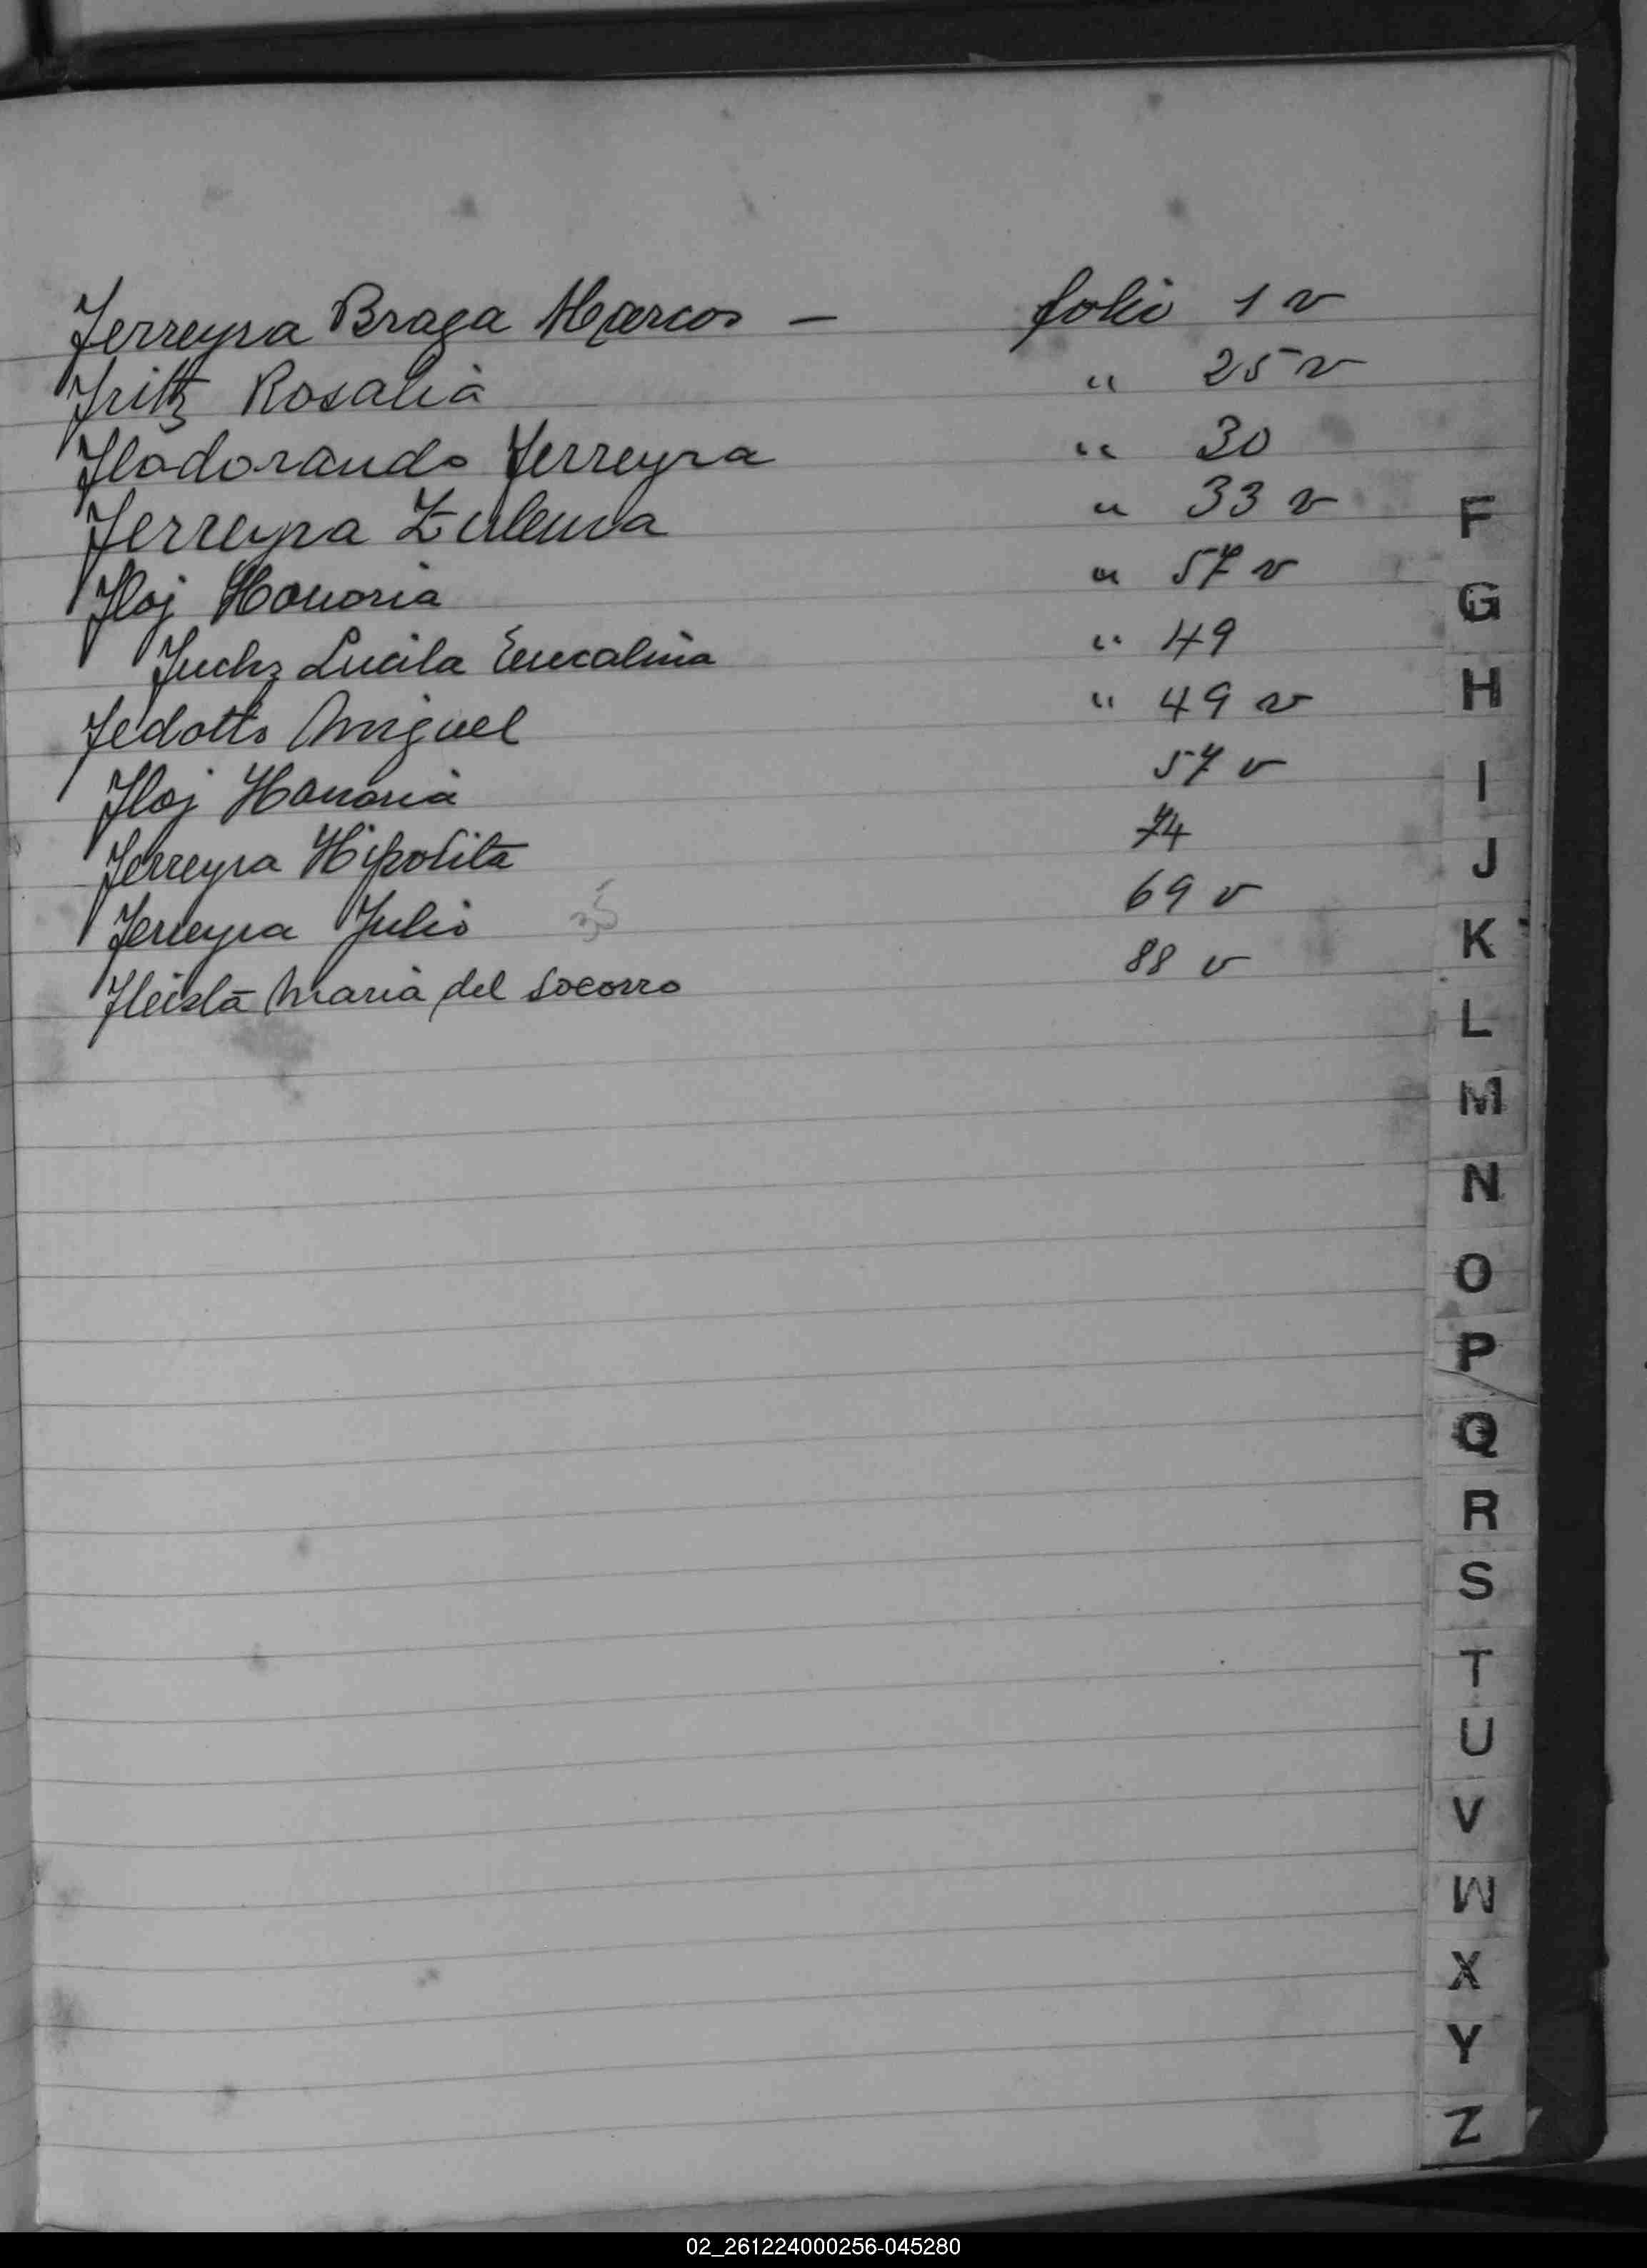 Ferreyra Braga Marcos — folio 1 v
Fritz Rosalia " 25 v
Flodorando Ferreyra " 30
Ferreyra Zulema " 33 v
Floj Honoria " 57 v
Fuchz Lucila " 49
Fedotto Miguel " 49 v
Floj Honoria 57 v
Ferreyra Hipolita 74
Ferreyra Julio 35 69 v
Fleista Maria del Socorro 88 v
F
G
H
I
J
K
L
M
N
O
P
Q
R
S
T
U
V
W
X
Y
Z
02_261224000256-045280